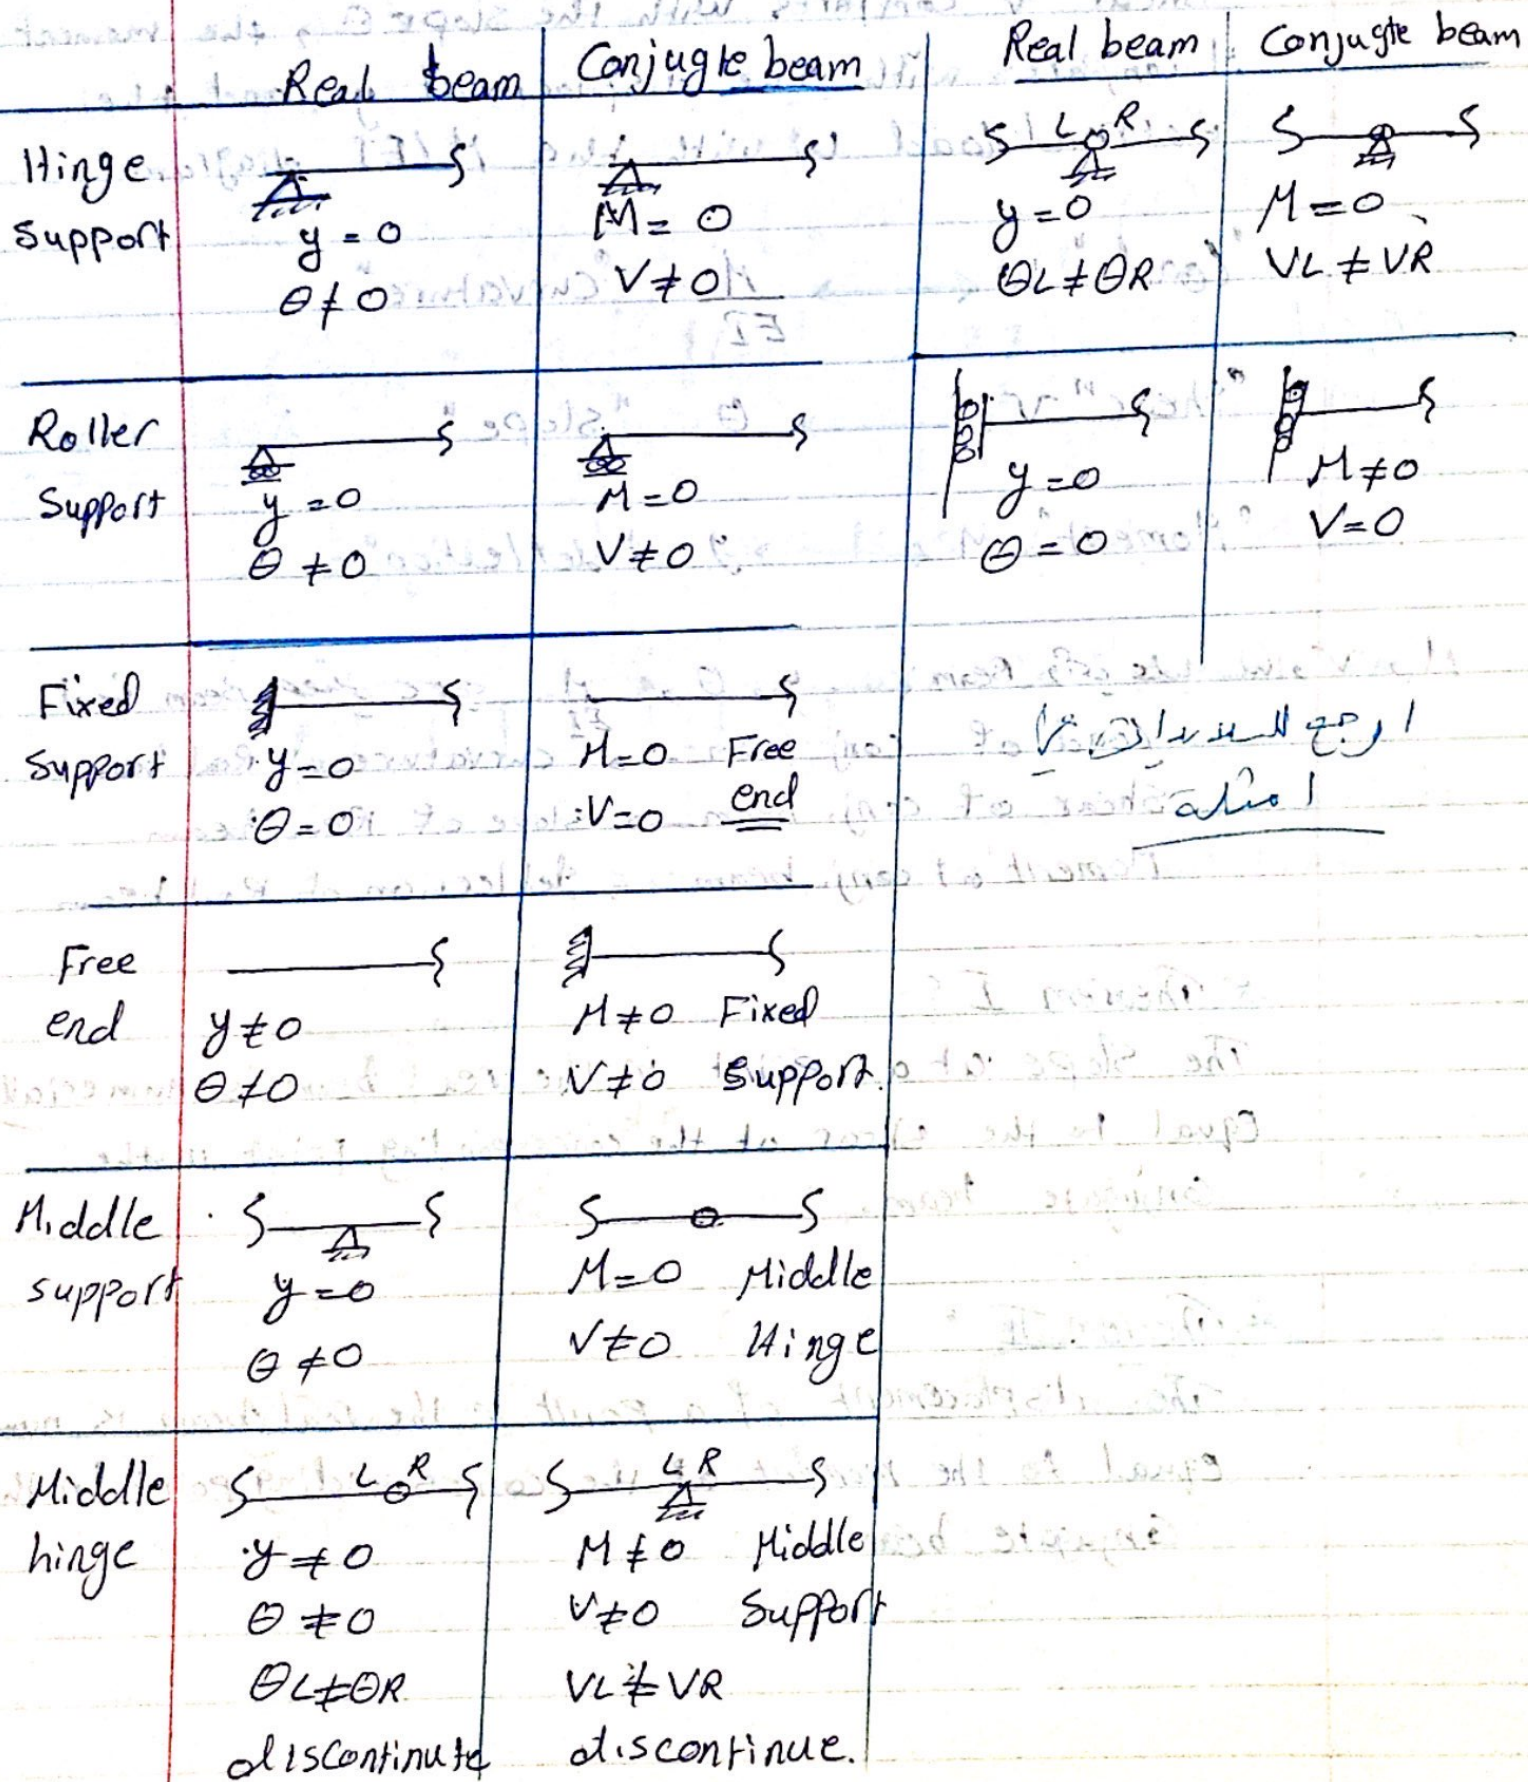 Real beam
Conjugte beam
Hinge
support
y = 0
θ ≠ 0
M = 0
V ≠ 0
Roller
Support
y = 0
θ ≠ 0
M = 0
V ≠ 0
Fixed
Support
y = 0
θ = 0
M = 0 Free
V = 0 end
Free
end
y ≠ 0
θ ≠ 0
M ≠ 0 Fixed
V ≠ 0 Support.
Middle
support
y = 0
θ ≠ 0
M = 0 Middle
V ≠ 0 Hinge
Middle
hinge
L R
y ≠ 0
θ ≠ 0
θL ≠ θR
discontinute
L R
M ≠ 0 Middle
V ≠ 0 Support
VL ≠ VR
discontinue.
Real beam
Conjugte beam
L R
y = 0
θL ≠ θR
M = 0
VL ≠ VR
y = 0
θ = 0
M ≠ 0
V = 0
ارجع للسلايدات
امثلة